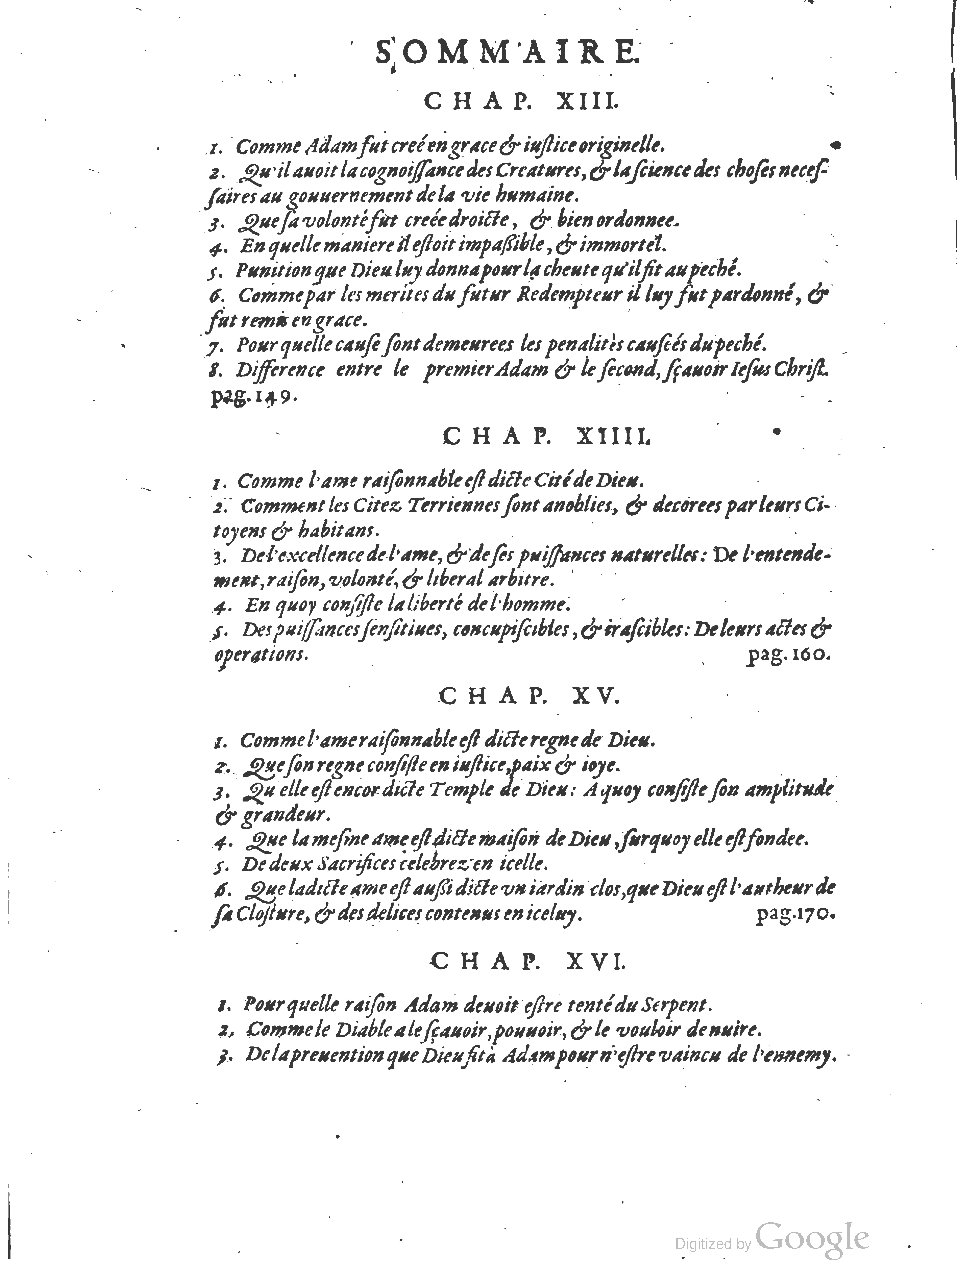 SOMMAIRE.
CHAP. XIII.
1. Comme Adam fut creé en grace & iuſtice originelle.
2. Qu'il auoit la cognoiſſance des Creatures, & la ſcience des choſes neceſ-
ſaires au gouuernement de la vie humaine.
3. Que ſa volonté fut creée droicte, & bien ordonnee.
4. En quelle maniere il eſtoit impaſſible, & immortel.
5. Punition que Dieu luy donna pour la cheute qu'il fit au peché.
6. Comme par les merites du futur Redempteur il luy fut pardonné, &
fut remis en grace.
7. Pour quelle cauſe ſont demeurees les penalitès cauſeés du peché.
8. Difference entre le premier Adam & le ſecond, ſçauoir Ieſus Chriſt.
pag. 149.
CHAP. XIIII.
1. Comme l'ame raiſonnable eſt dicte Cité de Dieu.
2. Comment les Citez Terriennes ſont anoblies, & decorees par leurs Ci-
toyens & habitans.
3. De l'excellence de l'ame, & de ſes puiſſances naturelles: De l'entende-
ment, raiſon, volonté, & liberal arbitre.
4. En quoy conſiſte la liberté de l'homme.
5. Des puiſſances ſenſitiues, concupiſcibles, & iraſcibles: De leurs actes &
operations. pag. 160.
CHAP. XV.
1. Comme l'ame raiſonnable eſt dicte regne de Dieu.
2. Que ſon regne conſiſte en iuſtice, paix & ioye.
3. Qu elle eſt encor dicte Temple de Dieu: A quoy conſiſte ſon amplitude
& grandeur.
4. Que la meſme ame eſt dicte maiſon de Dieu, ſur quoy elle eſt fondee.
5. De deux Sacrifices celebrez en icelle.
6. Que ladicte ame eſt auſſi dicte vn iardin clos, que Dieu eſt l'autheur de
ſa Cloſture, & des delices contenus en iceluy. pag. 170.
CHAP. XVI.
1. Pour quelle raiſon Adam deuoit eſtre tenté du Serpent.
2, Comme le Diable a le ſçauoir, pouuoir, & le vouloir de nuire.
3. De la preuention que Dieu fit à Adam pour n'eſtre vaincu de l'ennemy.
Digitized by Google